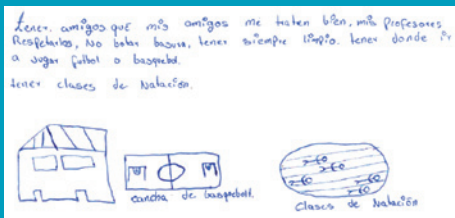 tener amigos que mis amigos me traten bien, mis profesores
Respetarlos, No botar basura, tener siempre limpio. tener donde ir
a jugar futbol o basquetbol.
tener clases de Natación.
cancha de basquetboll.
Clases de Natación